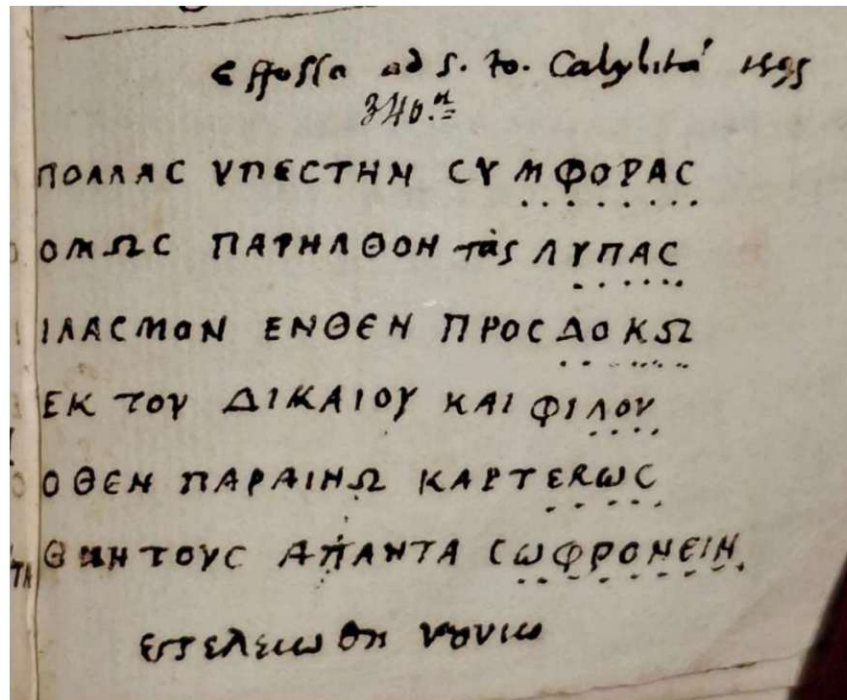 Effossa ad S. Io. Calybitā 1595
340.
ΠΟΛΛΑC ΥΠΕCΤΗΝ CΥΜΦΟΡΑC
ΟΜΩC ΠΑΡΗΛΘΟΝ τὰς ΛΥΠΑC
ΙΛΑCΜΟΝ ΕΝΘΕΝ ΠΡΟCΔΟΚΩ
ΕΚ ΤΟΥ ΔΙΚΑΙΟΥ ΚΑΙ ΦΙΛΟΥ
ΟΘΕΝ ΠΑΡΑΙΝΩ ΚΑΡΤΕΡΩC
ΘΝΗΤΟΥC ΑΠΑΝΤΑ CΩΦΡΟΝΕΙΝ
ετελειωθη